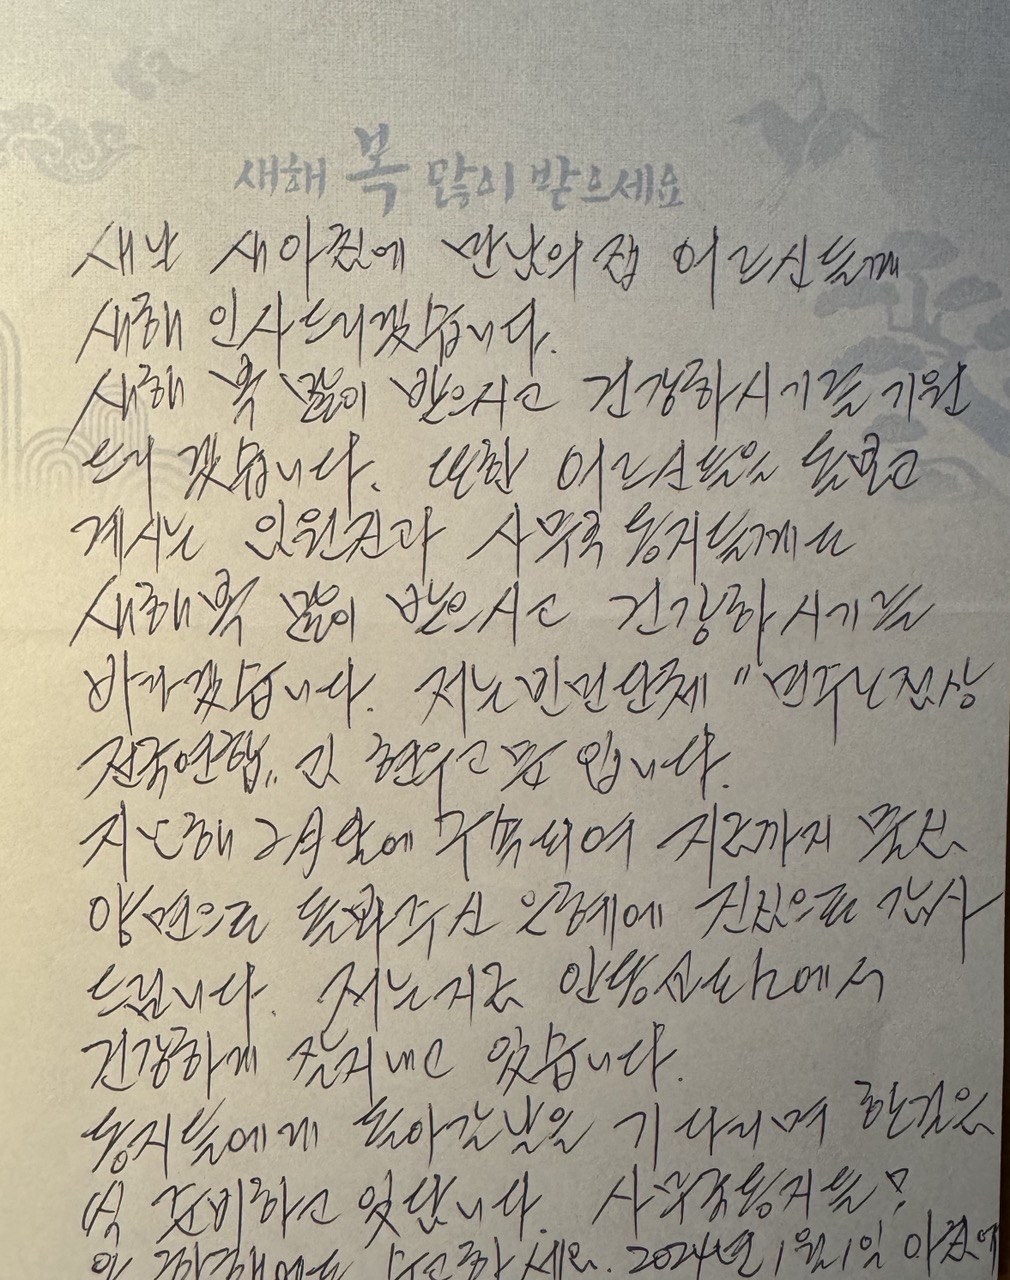 새해 복 많이 받으세요
새날 새아침에 만남의집 어르신들께
새해 인사드리겠습니다.
새해 복 많이 받으시고 건강하시기를 기원
드리겠습니다. 또한 어르신들을 돌보고
계시는 임원진과 사무국 동지들께도
새해 복 많이 받으시고 건강하시기를
바라겠습니다. 저는 민민단체 "민주노점상
전국연합" 김 현우고문 입니다.
지난해 2월달에 구속되여 지금까지 물심
양면으로 돌봐주신 은혜에 진심으로 감사
드립니다. 저는 지금 안동 에서
건강하게 잘지내고 있습니다.
동지들에게 돌아갈날을 기다리며 한걸음
씩 준비하고 있답니다. 사무국동지들!
하세요. 2024년 1월 1일 아침에